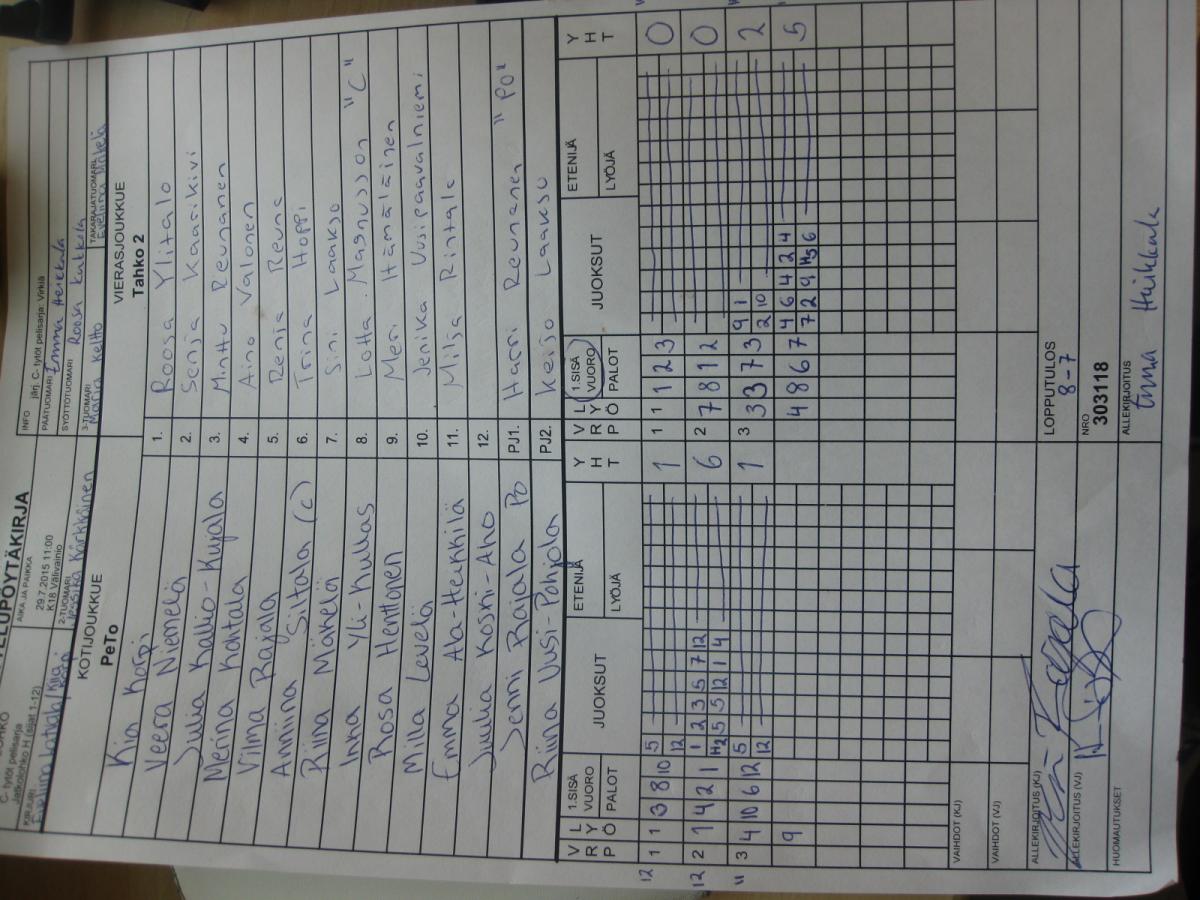 OTTELUPÖYTÄKIRJA
C. tytöt pelisarja
Jatkolohko H (sijat 1-12)
AIKA JA PAIKKA
29.7.2015 11:00
K18 Välivainio
INFO järj. C-tytöt pelisarja: Virkiä
PÄÄTUOMARI Emma Heikkala
KIRJURI
2-TUOMARI
Jessika Kärkkäinen
SYÖTTÖTUOMARI Roosa Kakkola
3-TUOMARI
Maria Keltto
TAKARAJATUOMARI
Eveliina Mäkelä
KOTIJOUKKUE
PeTo
VIERASJOUKKUE
Tahko 2
Kia Korpi 1. Roosa Ylitalo
Veera Niemelä 2. Senja Kaarikivi
Julia Kallio-Kujala 3. Minttu Reunanen
Merina Kohtala 4. Aino Valonen
Vilma Rajala 5. Renja Reuna
Anniina Siltala (c) 6. Triina Hoppi
Riina Mäkelä 7. Sini Laakso
Inna Yli-Kullas 8. Lotta Magnusson "C"
Rosa Henttonen 9. Meri Hämäläinen
Milla Levelä 10. Jenika Uusipaavalniemi
Emma Ala-Heikkilä 11. Milja Rintala
Julia Koski-Aho 12.
Jenni Rajala Po PJ1. Harri Reunanen "PO"
Riina Uusi-Pohjola PJ2. Keijo Laakso
VRP LYÖ 1.SISÄ VUORO PALOT JUOKSUT ETENIJÄ LYÖJÄ YHT VRP LYÖ 1.SISÄ VUORO PALOT JUOKSUT ETENIJÄ LYÖJÄ YHT
12 1 1 3 8 10 5 1 1 1 1 2 3 0
12
12 2 1 4 2 1 1 2 3 5 7 12 6 2 7 8 1 2 0
H2 5 5 12 1 4
11 3 4 10 6 12 5 1 3 3 3 7 3 9 1 2
12 2 10
9 4 8 6 7 4 6 4 2 4 5
7 2 9 H5 6
VAIHDOT (KJ)
VAIHDOT (VJ)
ALLEKIRJOITUS (KJ)
LOPPUTULOS
8-7
ALLEKIRJOITUS (VJ)
NRO
303118
HUOMAUTUKSET
ALLEKIRJOITUS
Emma Heikkala